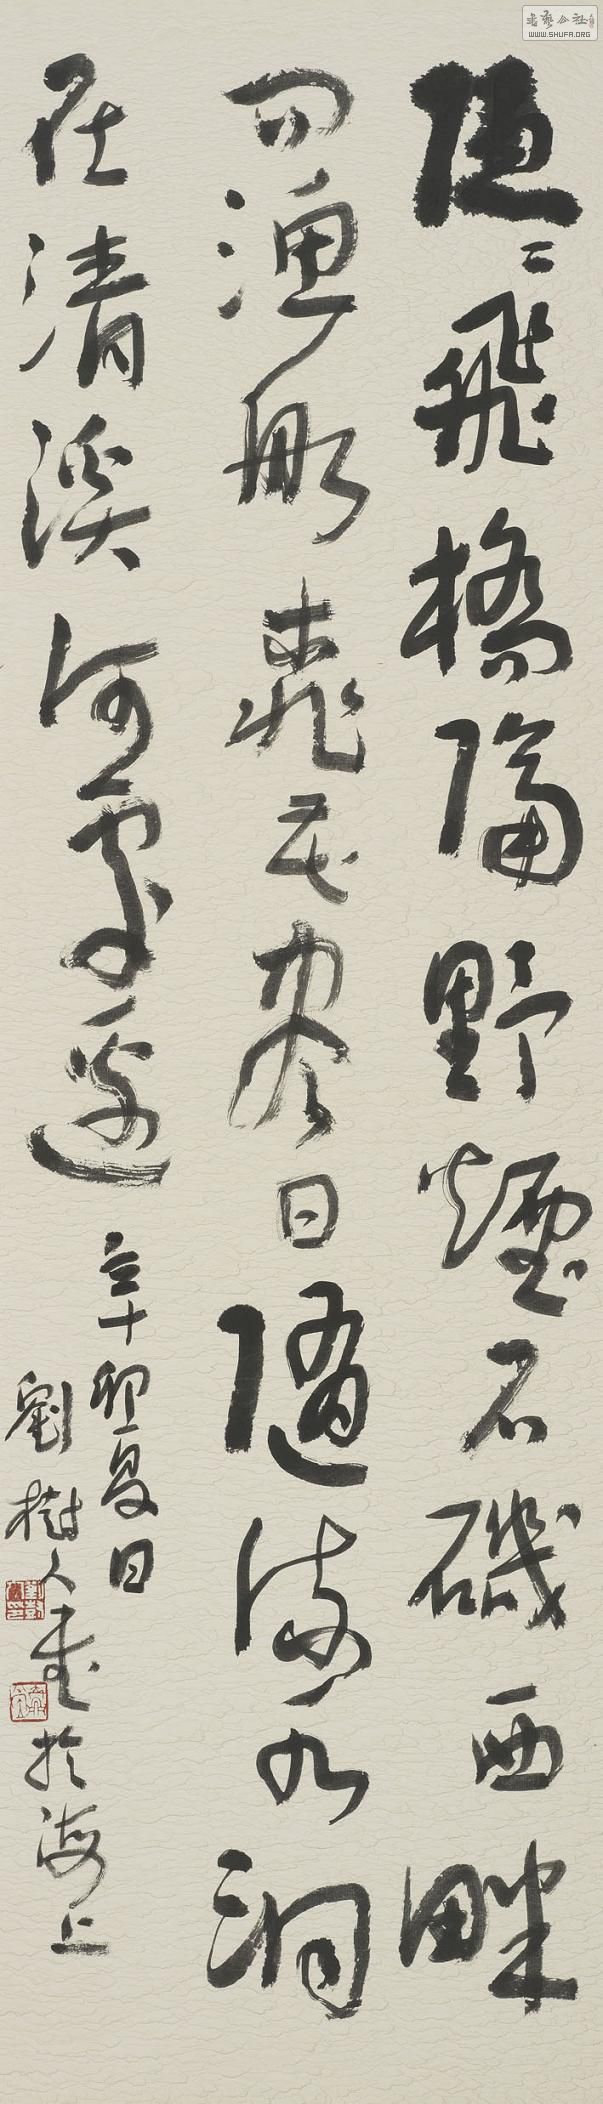 隱〻飛橋隔野煙石磯西畔
问漁船桃花尽日隨流水洞
在清溪何處邊
辛卯夏日
劉樹人書於海上
書藝公社
WWW.SHUFA.ORG